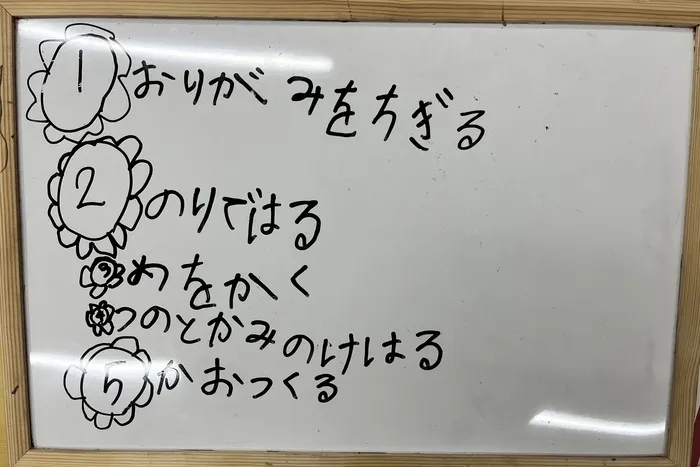 1 おりがみをちぎる
2 のりではる
3 めをかく
4 つのとかみのけはる
5 かおつくる